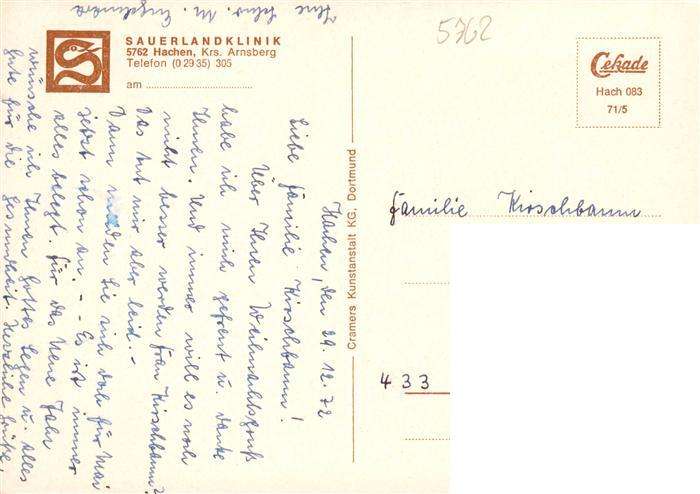 5762
SAUERLANDKLINIK
5762 Hachen, Krs. Arnsberg
Telefon (0 29 35) 305
am
Cekade
Hach 083
71/5
Cramers Kunstanstalt KG. Dortmund
Familie Kirschbaum
433
Hachen, den 29.12.72
Liebe Familie Kirschbaum!
Über Ihren Weihnachtsgruß
habe ich mich gefreut u. danke
Ihnen. Und immer will es noch
nicht besser werden Frau Kirschbaum?
Das tut mir aber leid. -
Dann melden Sie sich doch für Mai
jetzt schon an. - Es ist immer
alles belegt. Für das Neue Jahr
wünsche ich Ihnen Gottes Segen u. alles
Gute für die Gesundheit. Herzliche Grüße,
Ihre Schw. M.